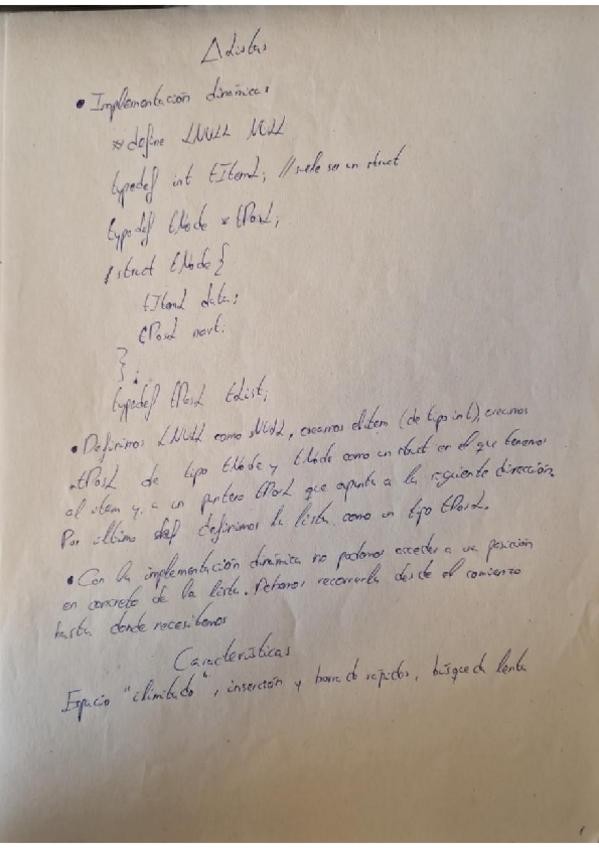 △ Listas
• Implementación dinámica:
# define LNULL NULL
typedef int tItemL; // suele ser un struct
typedef tNode * tPosL;
struct tNode {
tItemL data;
tPosL next;
};
typedef tPosL tList;
• Definimos LNULL como NULL, creamos el item (de tipo int), creamos
*tPosL de tipo tNode y tNode como un struct en el que tenemos
al item y a un puntero tPosL que apunta a la siguiente dirección.
Por último definimos la lista como un tipo tPosL.
• Con la implementación dinámica no podemos acceder a una posición
en concreto de la lista. Debemos recorrerla desde el comienzo
hasta donde necesitemos
Características
Espacio "ilimitado", inserción y borrado rápidos, búsqueda lenta
1